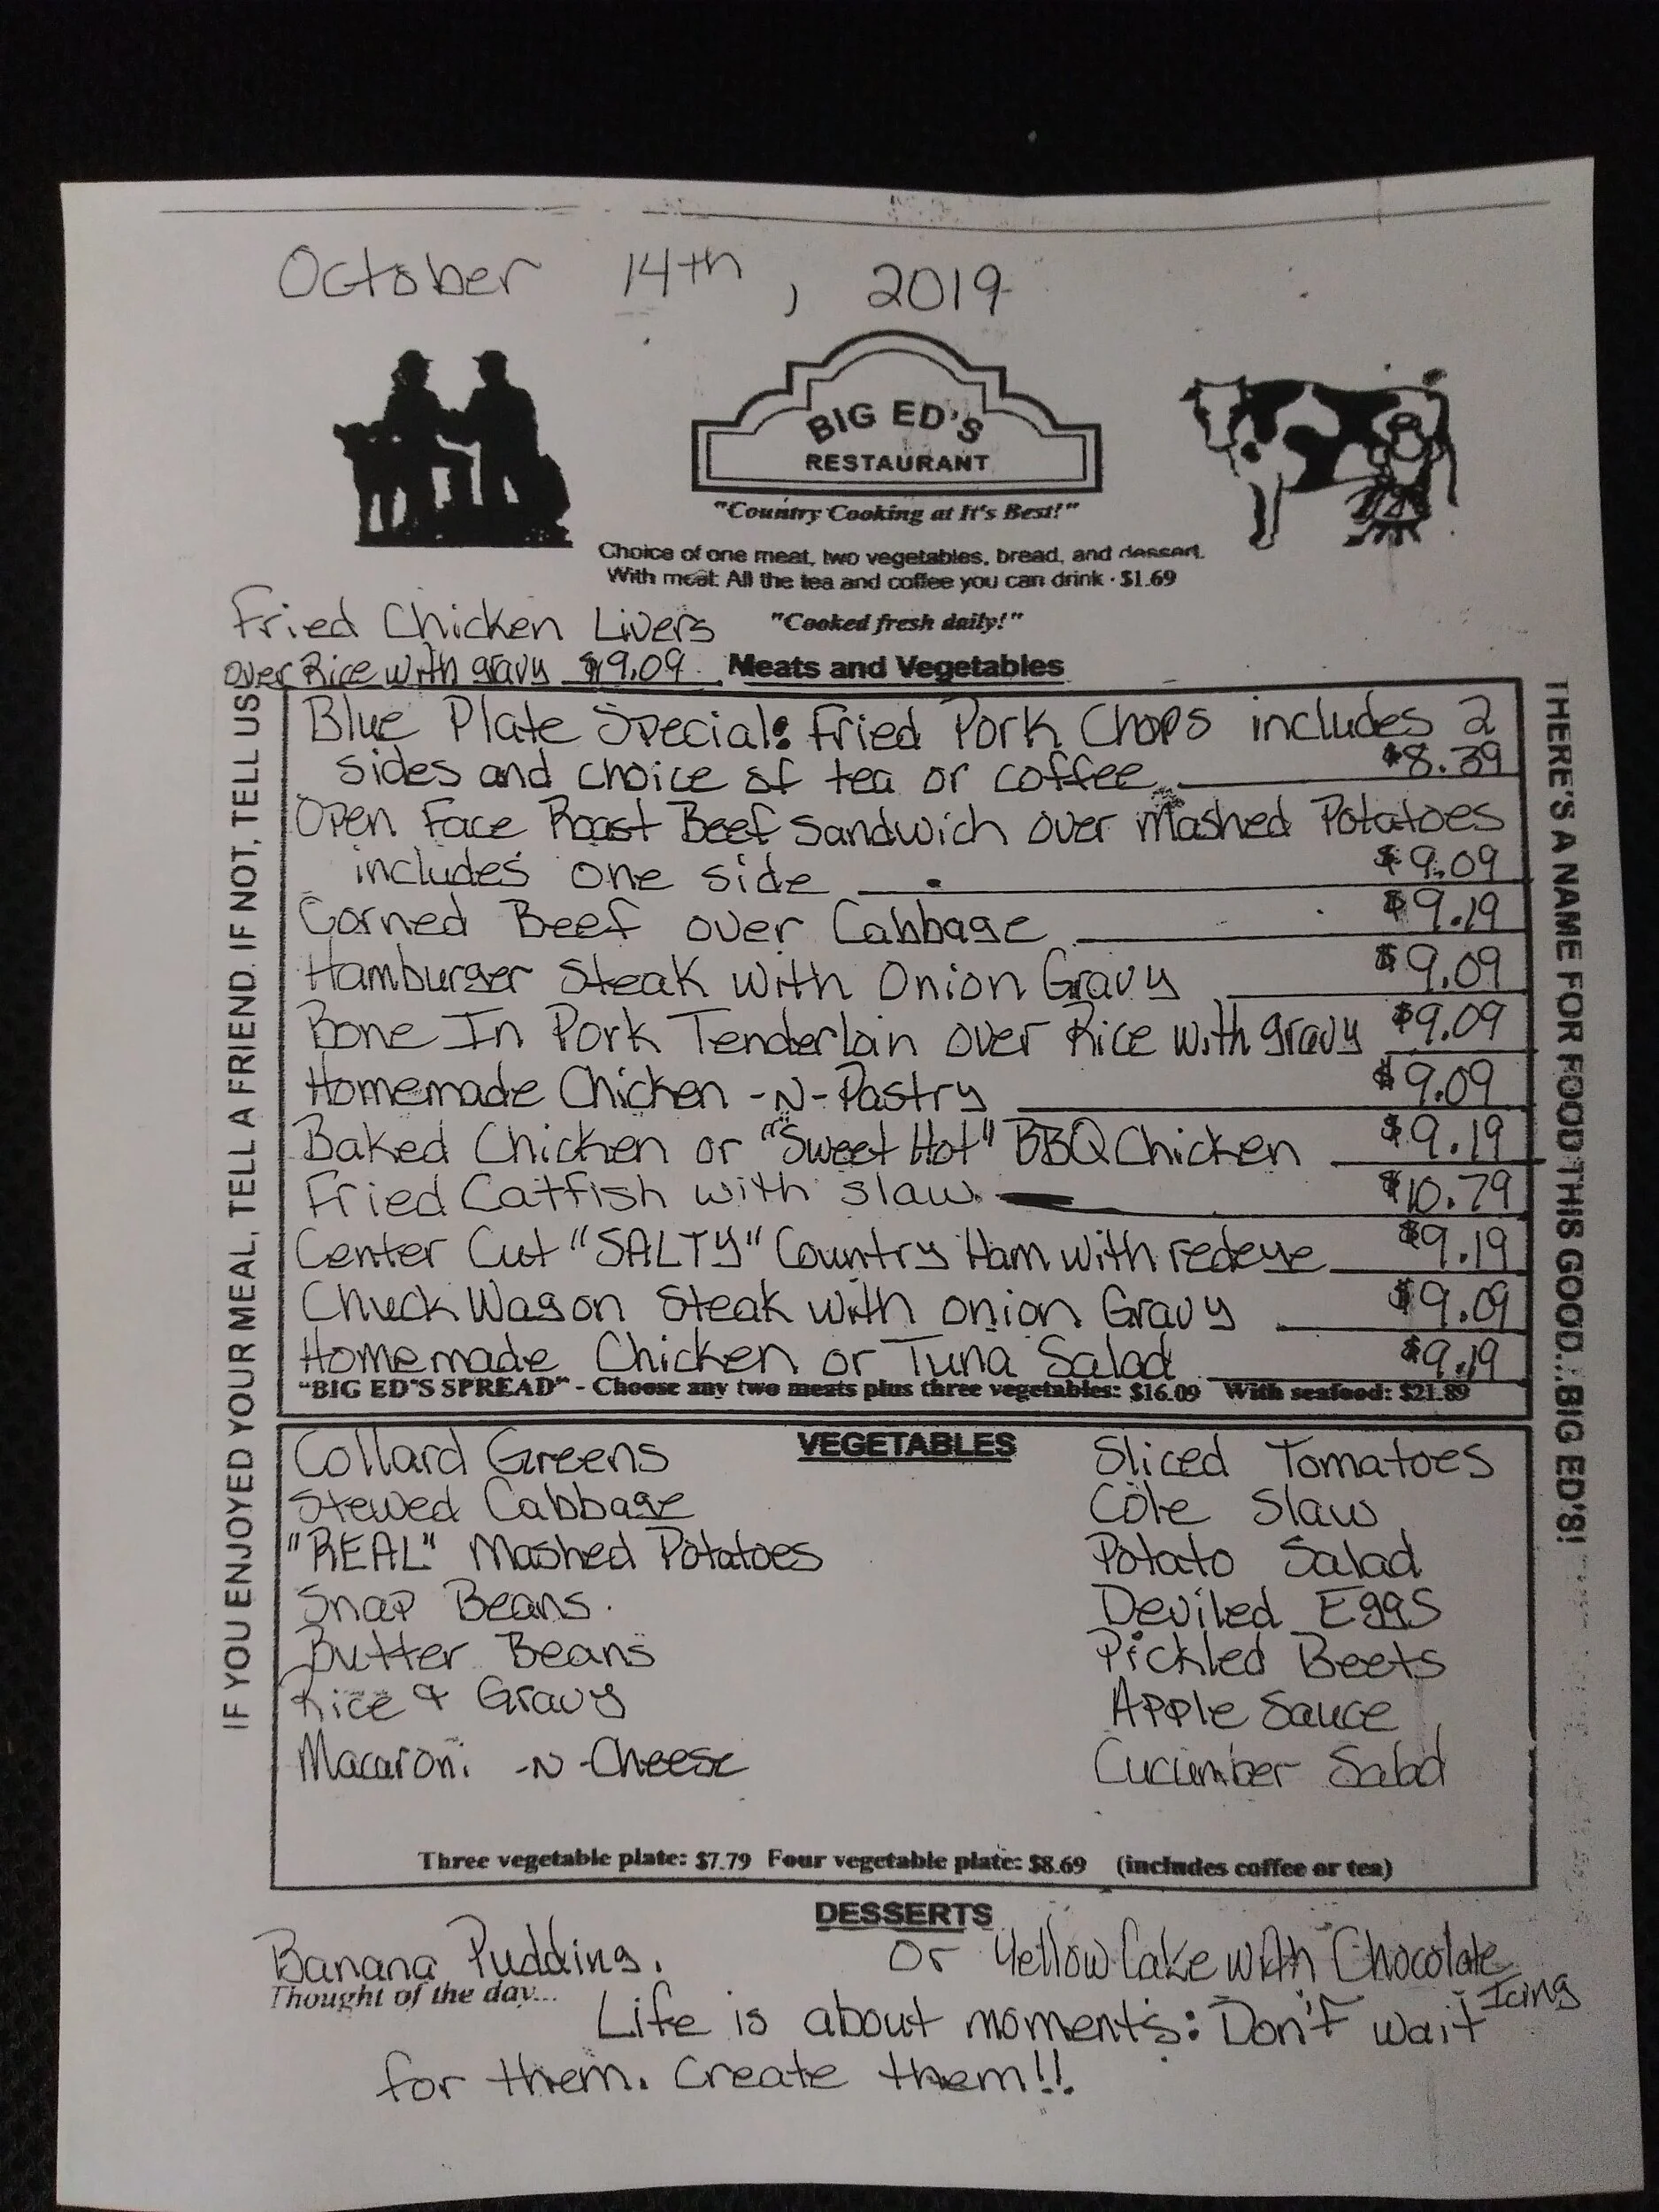 October 14th, 2019
BIG ED'S
RESTAURANT
"Country Cooking at It's Best!"
Choice of one meat, two vegetables, bread, and dessert.
With meal: All the tea and coffee you can drink · $1.69
Fried Chicken Livers "Cooked fresh daily!"
over Rice with gravy $9.09 Meats and Vegetables
IF YOU ENJOYED YOUR MEAL, TELL A FRIEND. IF NOT, TELL US!
Blue Plate Special: Fried Pork Chops includes 2
sides and choice of tea or coffee $8.39
Open Face Roast Beef Sandwich over Mashed Potatoes
includes one side $9.09
Corned Beef over Cabbage $9.19
Hamburger Steak with Onion Gravy $9.09
Bone In Pork Tenderloin over Rice with gravy $9.09
Homemade Chicken -N- Pastry $9.09
Baked Chicken or "Sweet Hot" BBQ Chicken $9.19
Fried Catfish with slaw $10.79
Center Cut "SALTY" Country Ham with redeye $9.19
Chuck Wagon Steak with onion Gravy $9.09
Homemade Chicken or Tuna Salad $9.19
"BIG ED'S SPREAD" - Choose any two meats plus three vegetables: $16.09 With seafood: $21.89
THERE'S A NAME FOR FOOD THIS GOOD...BIG ED'S!
VEGETABLES
Collard Greens Sliced Tomatoes
Stewed Cabbage Cole Slaw
"REAL" Mashed Potatoes Potato Salad
Snap Beans Deviled Eggs
Butter Beans Pickled Beets
Rice & Gravy Apple Sauce
Macaroni -N- Cheese Cucumber Salad
Three vegetable plate: $7.79 Four vegetable plate: $8.69 (includes coffee or tea)
DESSERTS
Banana Pudding. Or Yellow Cake with Chocolate
Icing
Thought of the day...
Life is about moments: Don't wait
for them. Create them!!